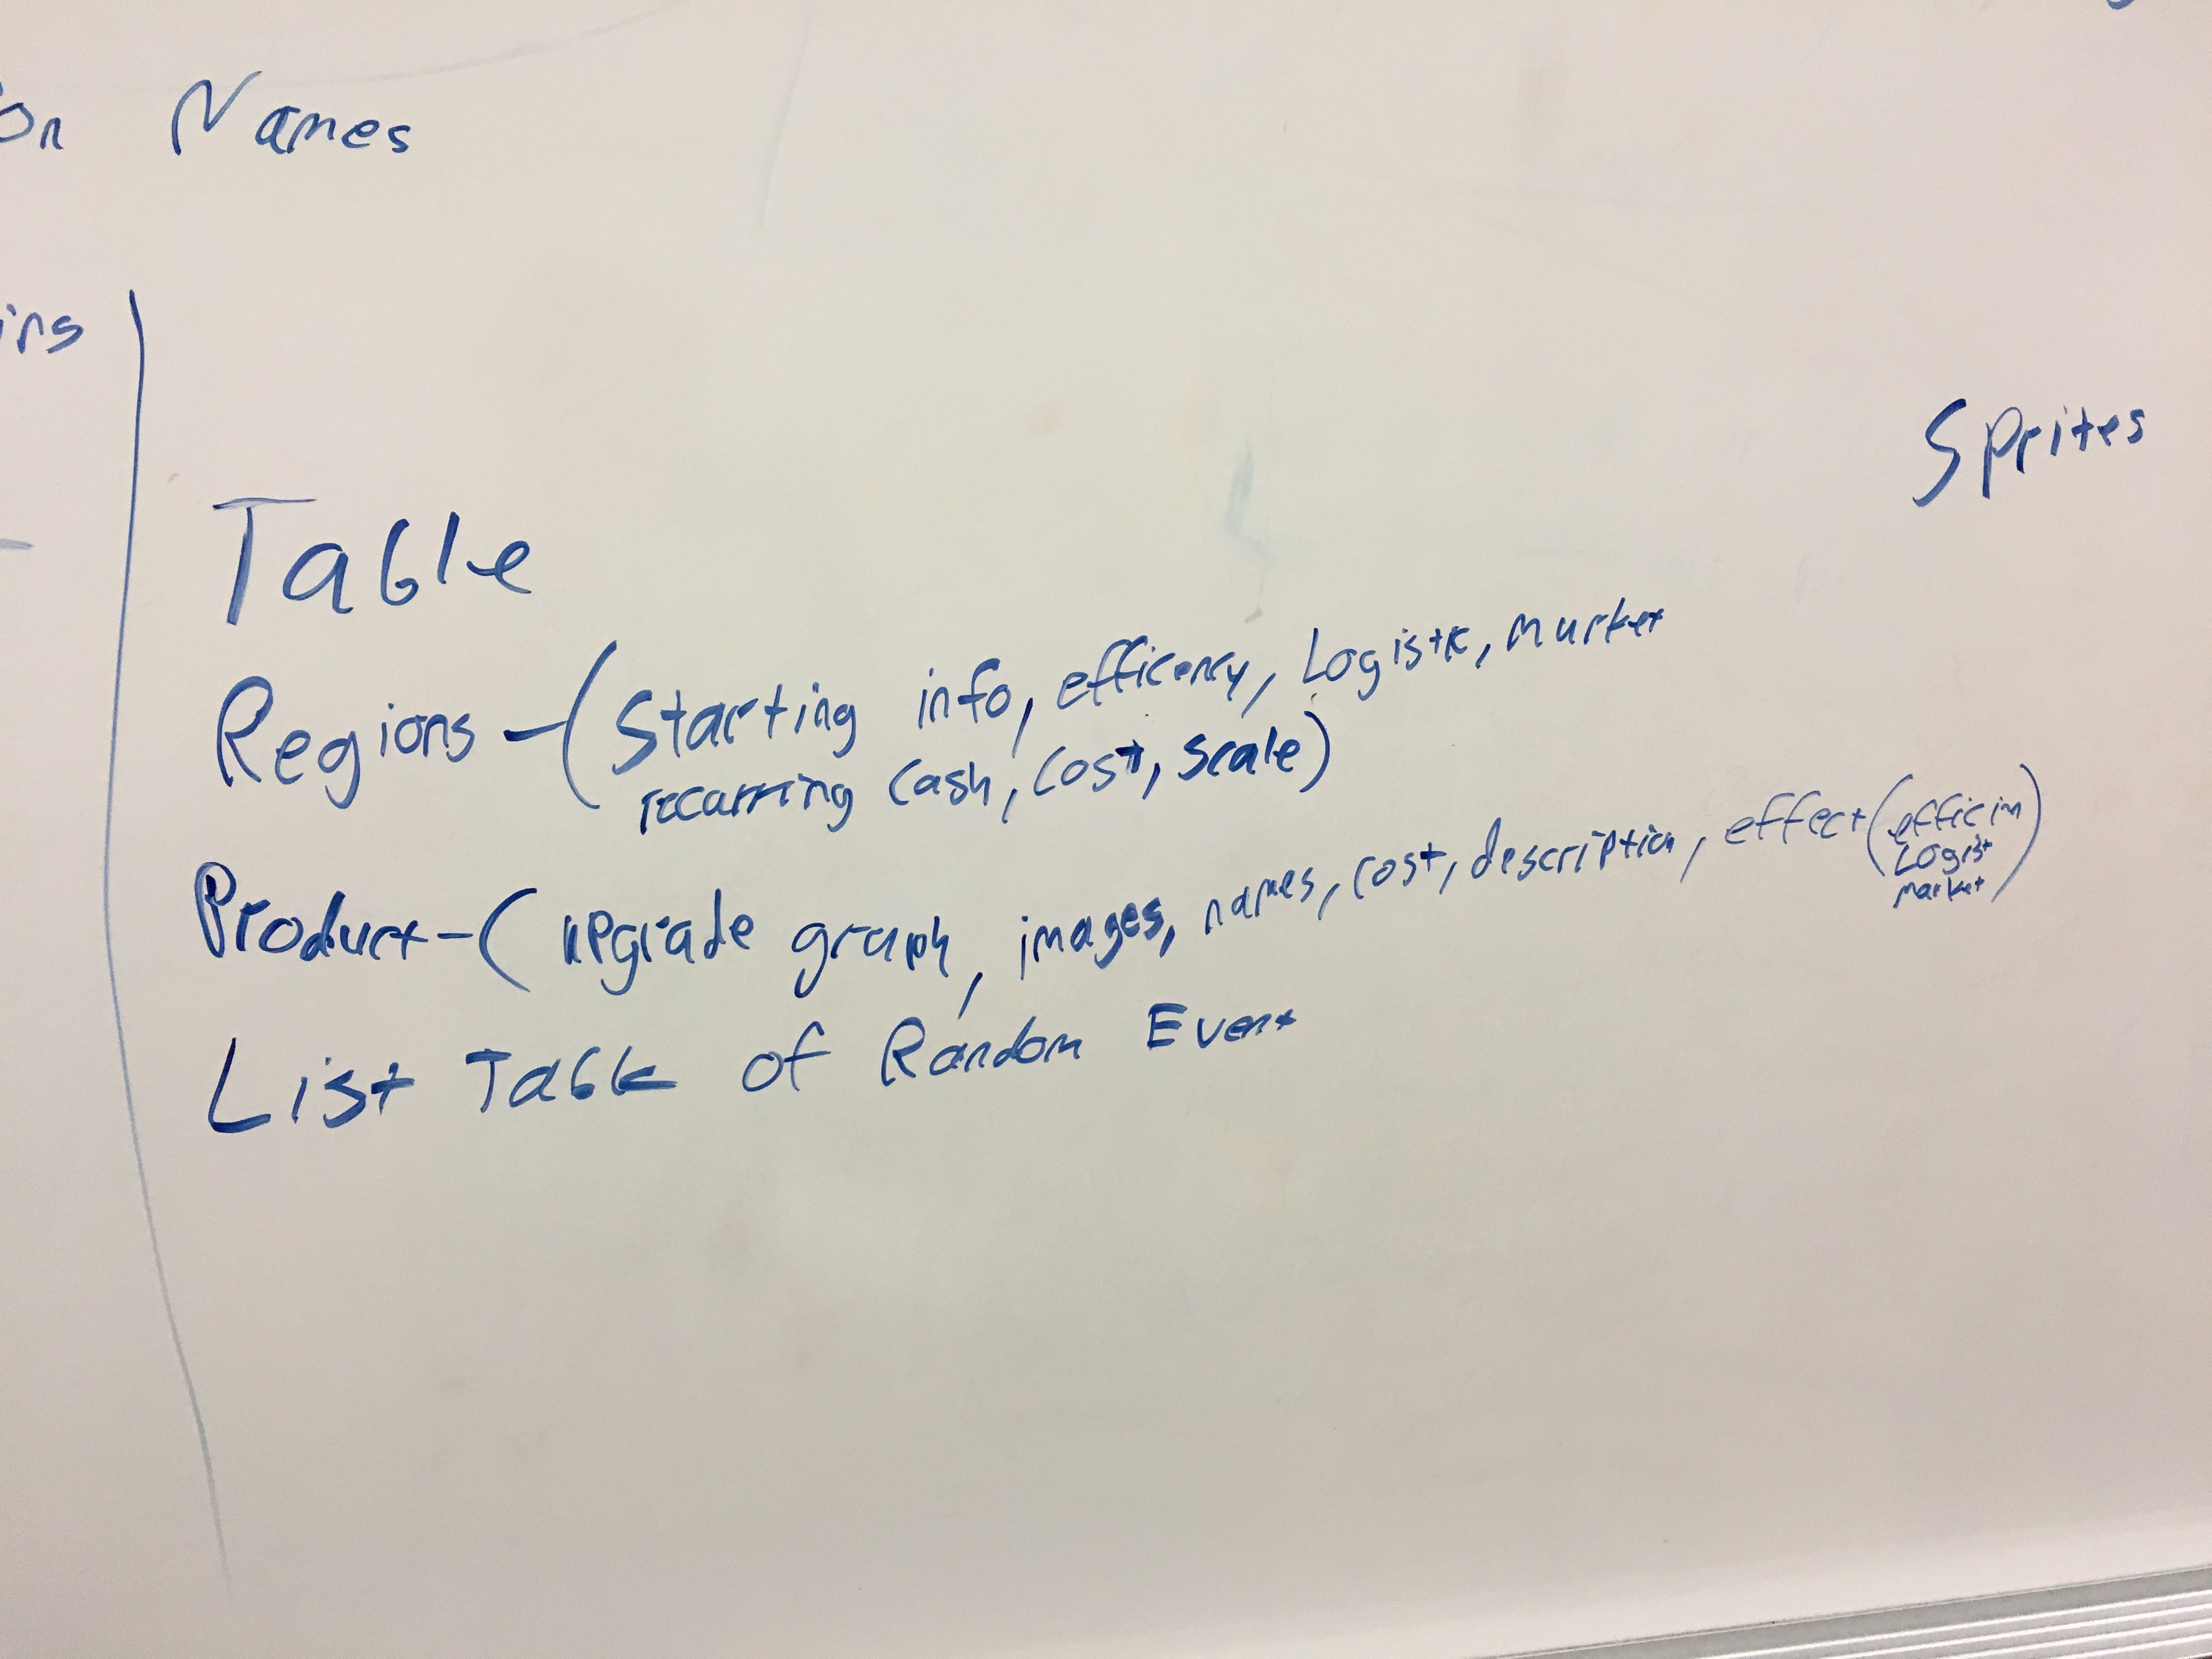 on Names
ins
Sprites
Table
Regions - (Starting info, efficency, Logistic, market
recurring cash, cost, scale)
Product - (upgrade graph, images, names, cost, description, effect (efficin
Logist
market)
List Table of Random Event